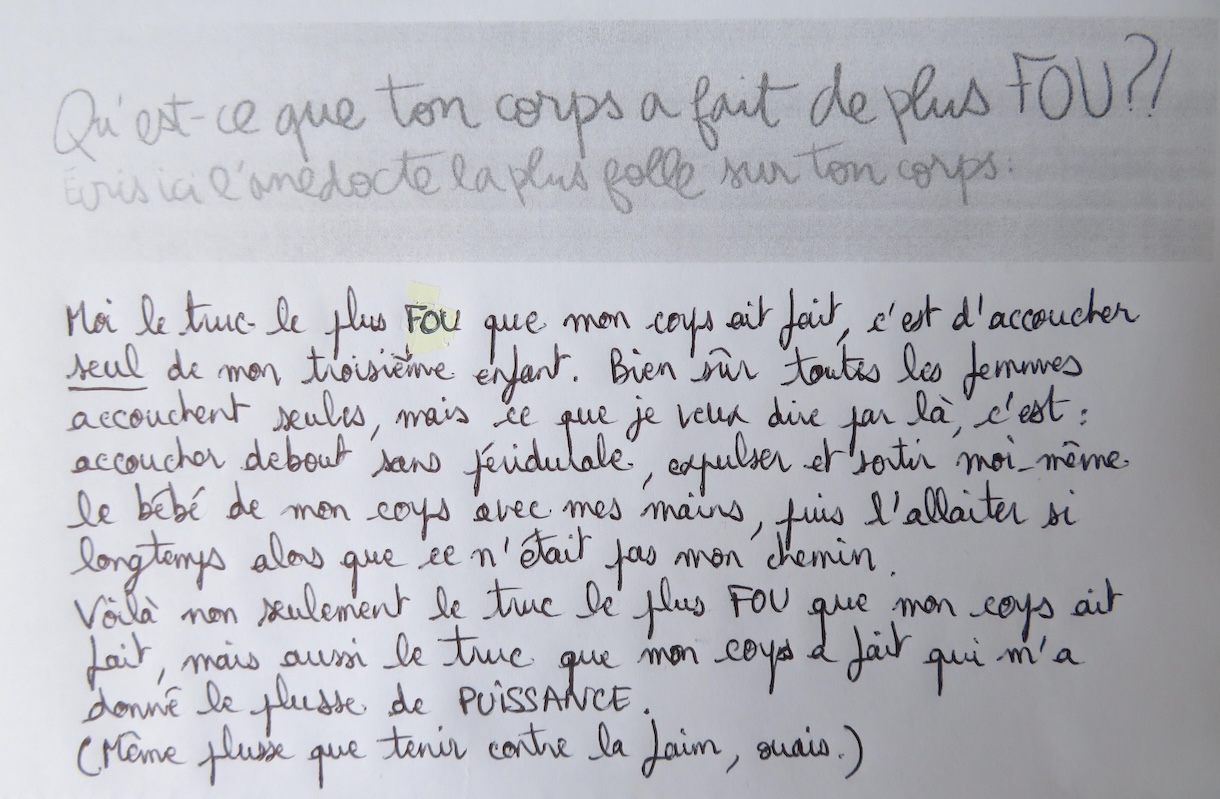 Qu'est-ce que ton corps a fait de plus FOU?!
Écris ici l'anédocte la plus folle sur ton corps:
Moi le truc le plus FOU que mon corps ait fait, c'est d'accoucher
seul de mon troisième enfant. Bien sûr toutes les femmes
accouchent seules, mais ce que je veux dire par là, c'est :
accoucher debout sans péridurale, expulser et sortir moi-même
le bébé de mon corps avec mes mains, puis l'allaiter si
longtemps alors que ce n'était pas mon chemin.
Voilà non seulement le truc le plus FOU que mon corps ait
fait, mais aussi le truc que mon corps a fait qui m'a
donné le plusse de PUISSANCE.
(Même plusse que tenir contre la faim, ouais.)